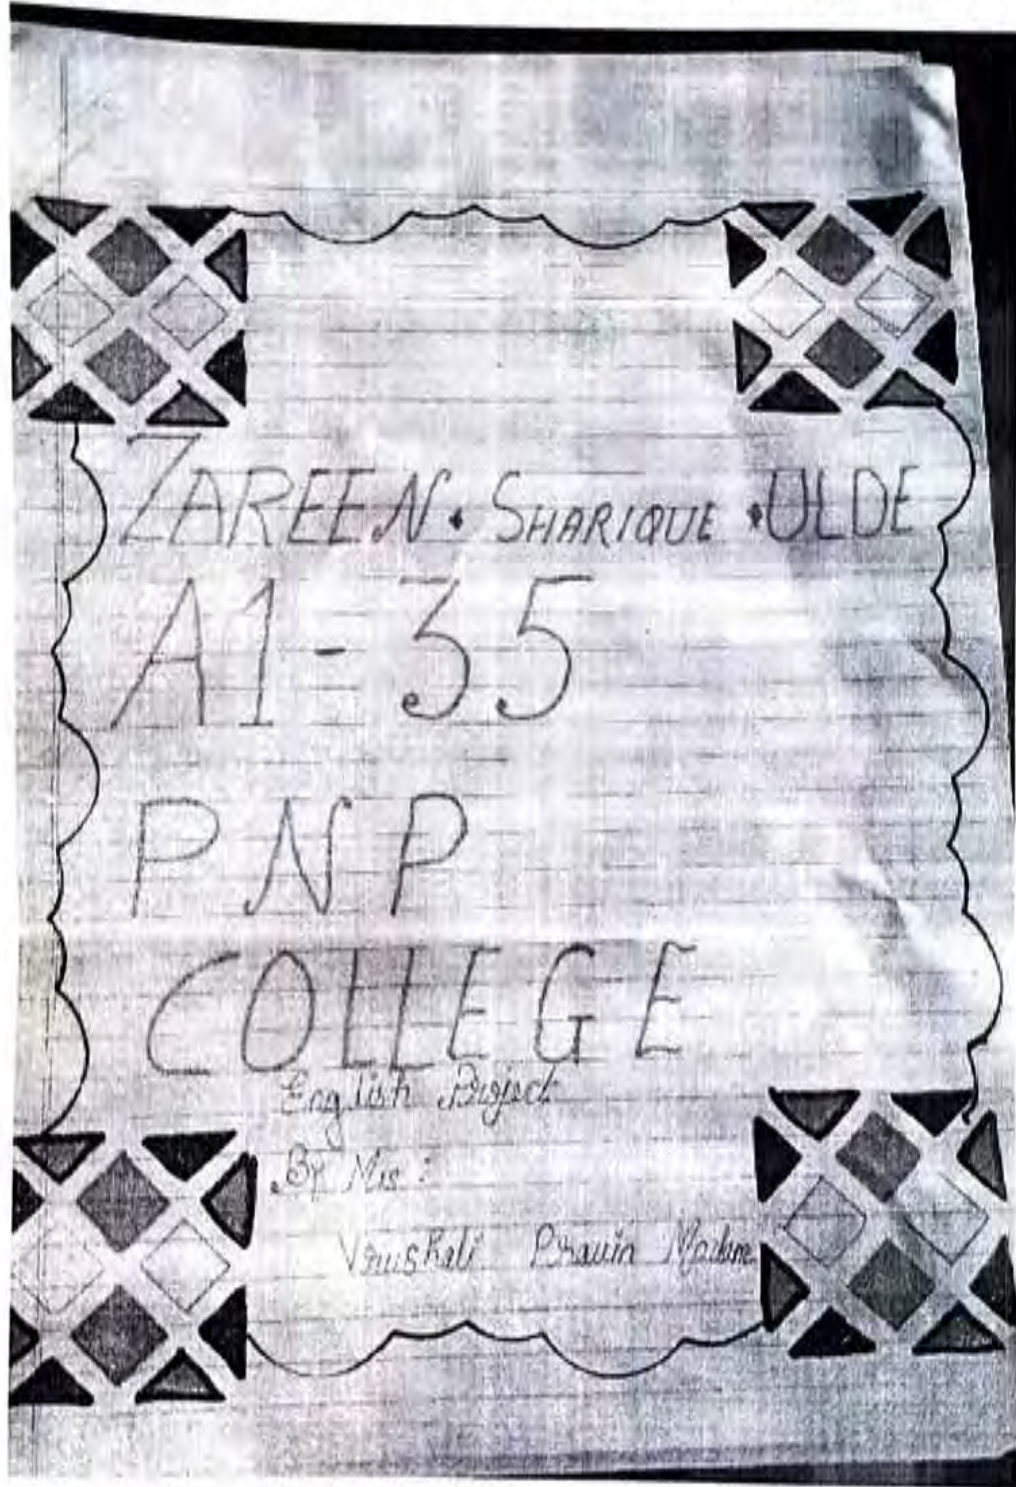 ZAREEN • SHARIQUE • ULDE
A1-35
PNP
COLLEGE
English Project
By Mis :
Vrushali Pravin